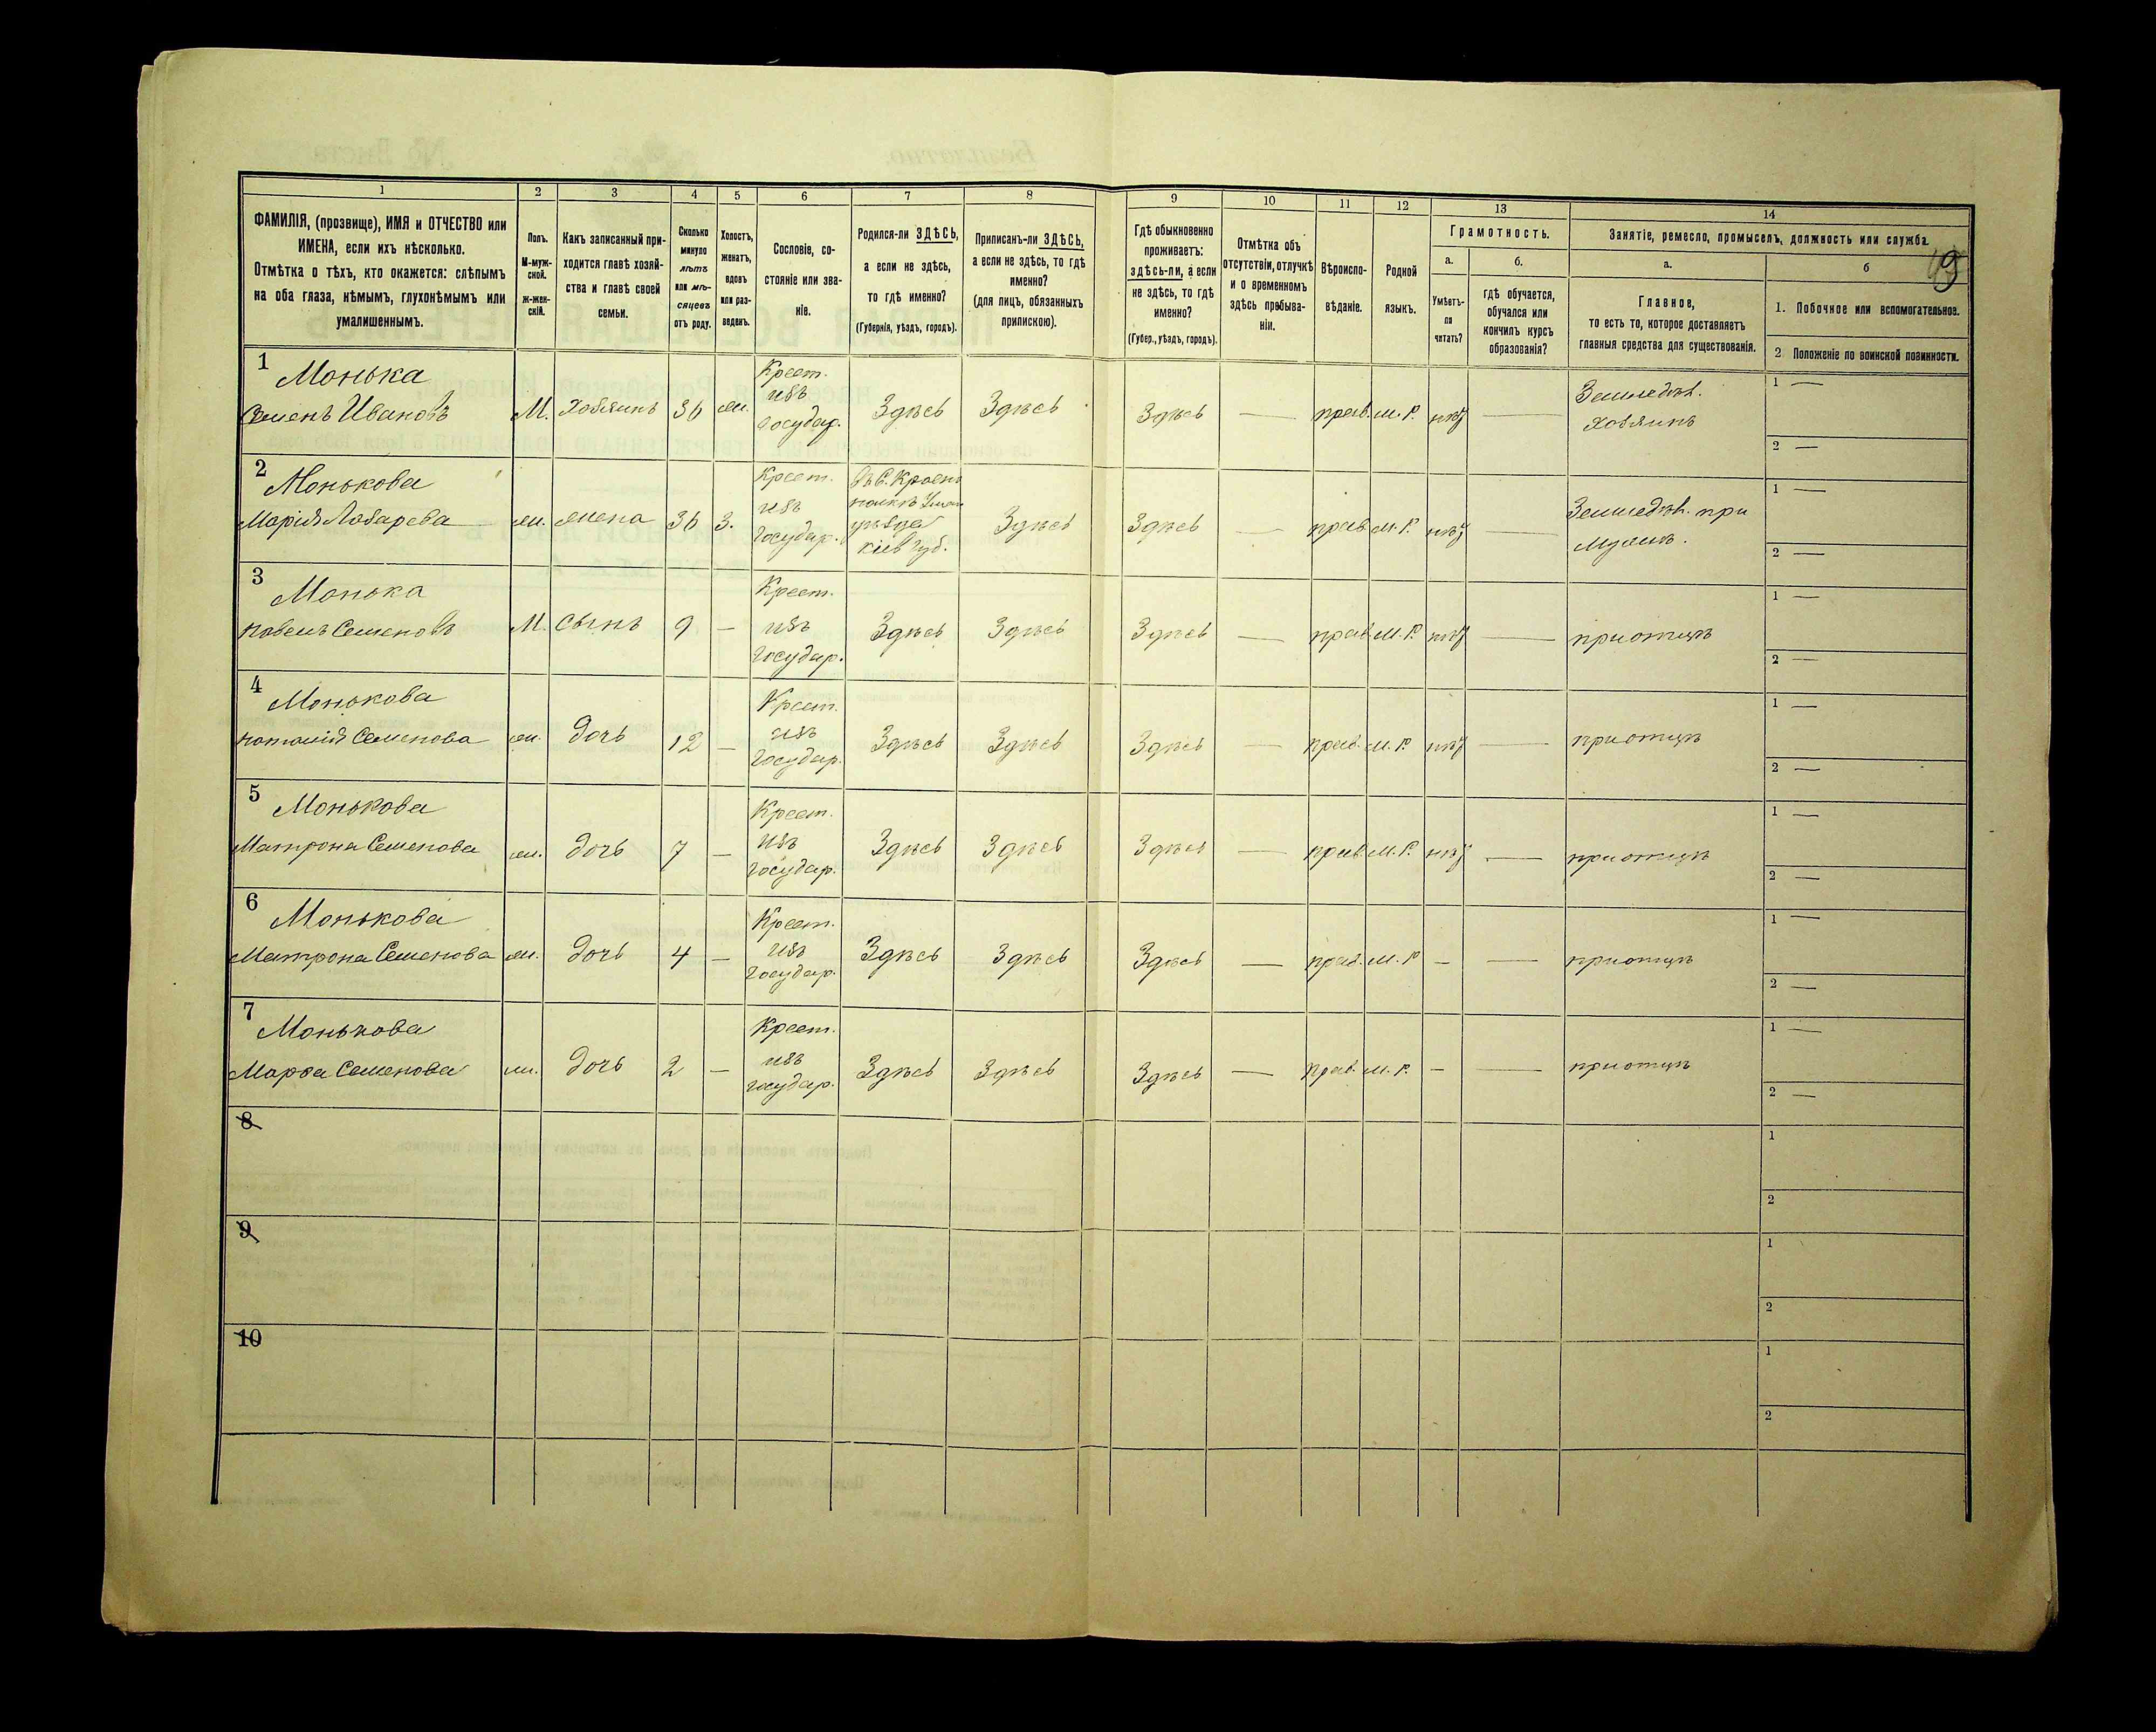 1
2
3
4
5
6
7
8
9
10
11
12
13
14
ФАМИЛІЯ, (прозвище), ИМЯ и ОТЧЕСТВО или
ИМЕНА, если ихъ нѣсколько.
Отмѣтка о тѣхъ, кто окажется: слѣпымъ
на оба глаза, нѣмымъ, глухонѣмымъ или
умалишеннымъ.
Полъ.
М-муж-
ской.
Ж-жен-
скій.
Какъ записанный при-
ходится главѣ хозяй-
ства и главѣ своей
семьи.
Сколько
минуло
лѣтъ
или мѣ-
сяцевъ
отъ роду.
Холостъ,
женатъ,
вдовъ
или раз-
веденъ.
Сословіе, со-
стояніе или зва-
ніе.
Родился-ли ЗДѢСЬ,
а если не здѣсь,
то гдѣ именно?
(Губернія, уѣздъ, городъ).
Приписанъ-ли ЗДѢСЬ,
а если не здѣсь, то гдѣ
именно?
(для лицъ, обязанныхъ
припискою).
Гдѣ обыкновенно
проживаетъ:
здѣсь-ли, а если
не здѣсь, то гдѣ
именно?
(Губер., уѣздъ, городъ).
Отмѣтка объ
отсутствіи, отлучкѣ
и о временномъ
здѣсь пребыва-
ніи.
Вѣроиспо-
вѣданіе.
Родной
языкъ.
Грамотность.
а.
Умѣетъ-
ли
читать?
б.
гдѣ обучается,
обучался или
кончилъ курсъ
образованія?
Занятіе, ремесло, промыселъ, должность или служба.
а.
Главное,
то есть то, которое доставляетъ
главныя средства для существованія.
б
1. Побочное или вспомогательное.
2 Положеніе по воинской повинности.
1
Монька
Семенъ Ивановъ
М. Хозяинъ 36 ж.
Крест.
изъ
государ.
Здѣсь Здѣсь Здѣсь — прав. м. р. нѣт —
Земледѣл.
Хозяинъ
1 —
2 —
2
Монькова
Марія Лазарева
ж. жена 36 З.
Крест.
изъ
государ.
уѣзда
Кіев губ.
Здѣсь Здѣсь — прав. м. р. нѣт —
Земледѣл. при
мужѣ.
1 —
2 —
3
Монька
Павелъ Семеновъ
М. сынъ 9 —
Крест.
изъ
государ.
Здѣсь Здѣсь Здѣсь — прав. м. р. нѣт — при отцѣ
1 —
2 —
4
Монькова
Наталія Семенова
ж. дочь 12 —
Крест.
изъ
государ.
Здѣсь Здѣсь Здѣсь — прав. м. р. нѣт — при отцѣ
1 —
2 —
5
Монькова
Матрона Семенова
ж. дочь 7 —
Крест.
изъ
государ.
Здѣсь Здѣсь Здѣсь — прав. м. р. нѣт — при отцѣ
1 —
2 —
6
Монькова
Матрона Семенова
ж. дочь 4 —
Крест.
изъ
государ.
Здѣсь Здѣсь Здѣсь — прав. м. р — — при отцѣ
1 —
2 —
7
Монькова
Марѳа Семенова
ж. дочь 2 —
Крест.
изъ
государ.
Здѣсь Здѣсь Здѣсь — прав. м. р. — — при отцѣ
1 —
2 —
8
1
2
9
1
2
10
1
2